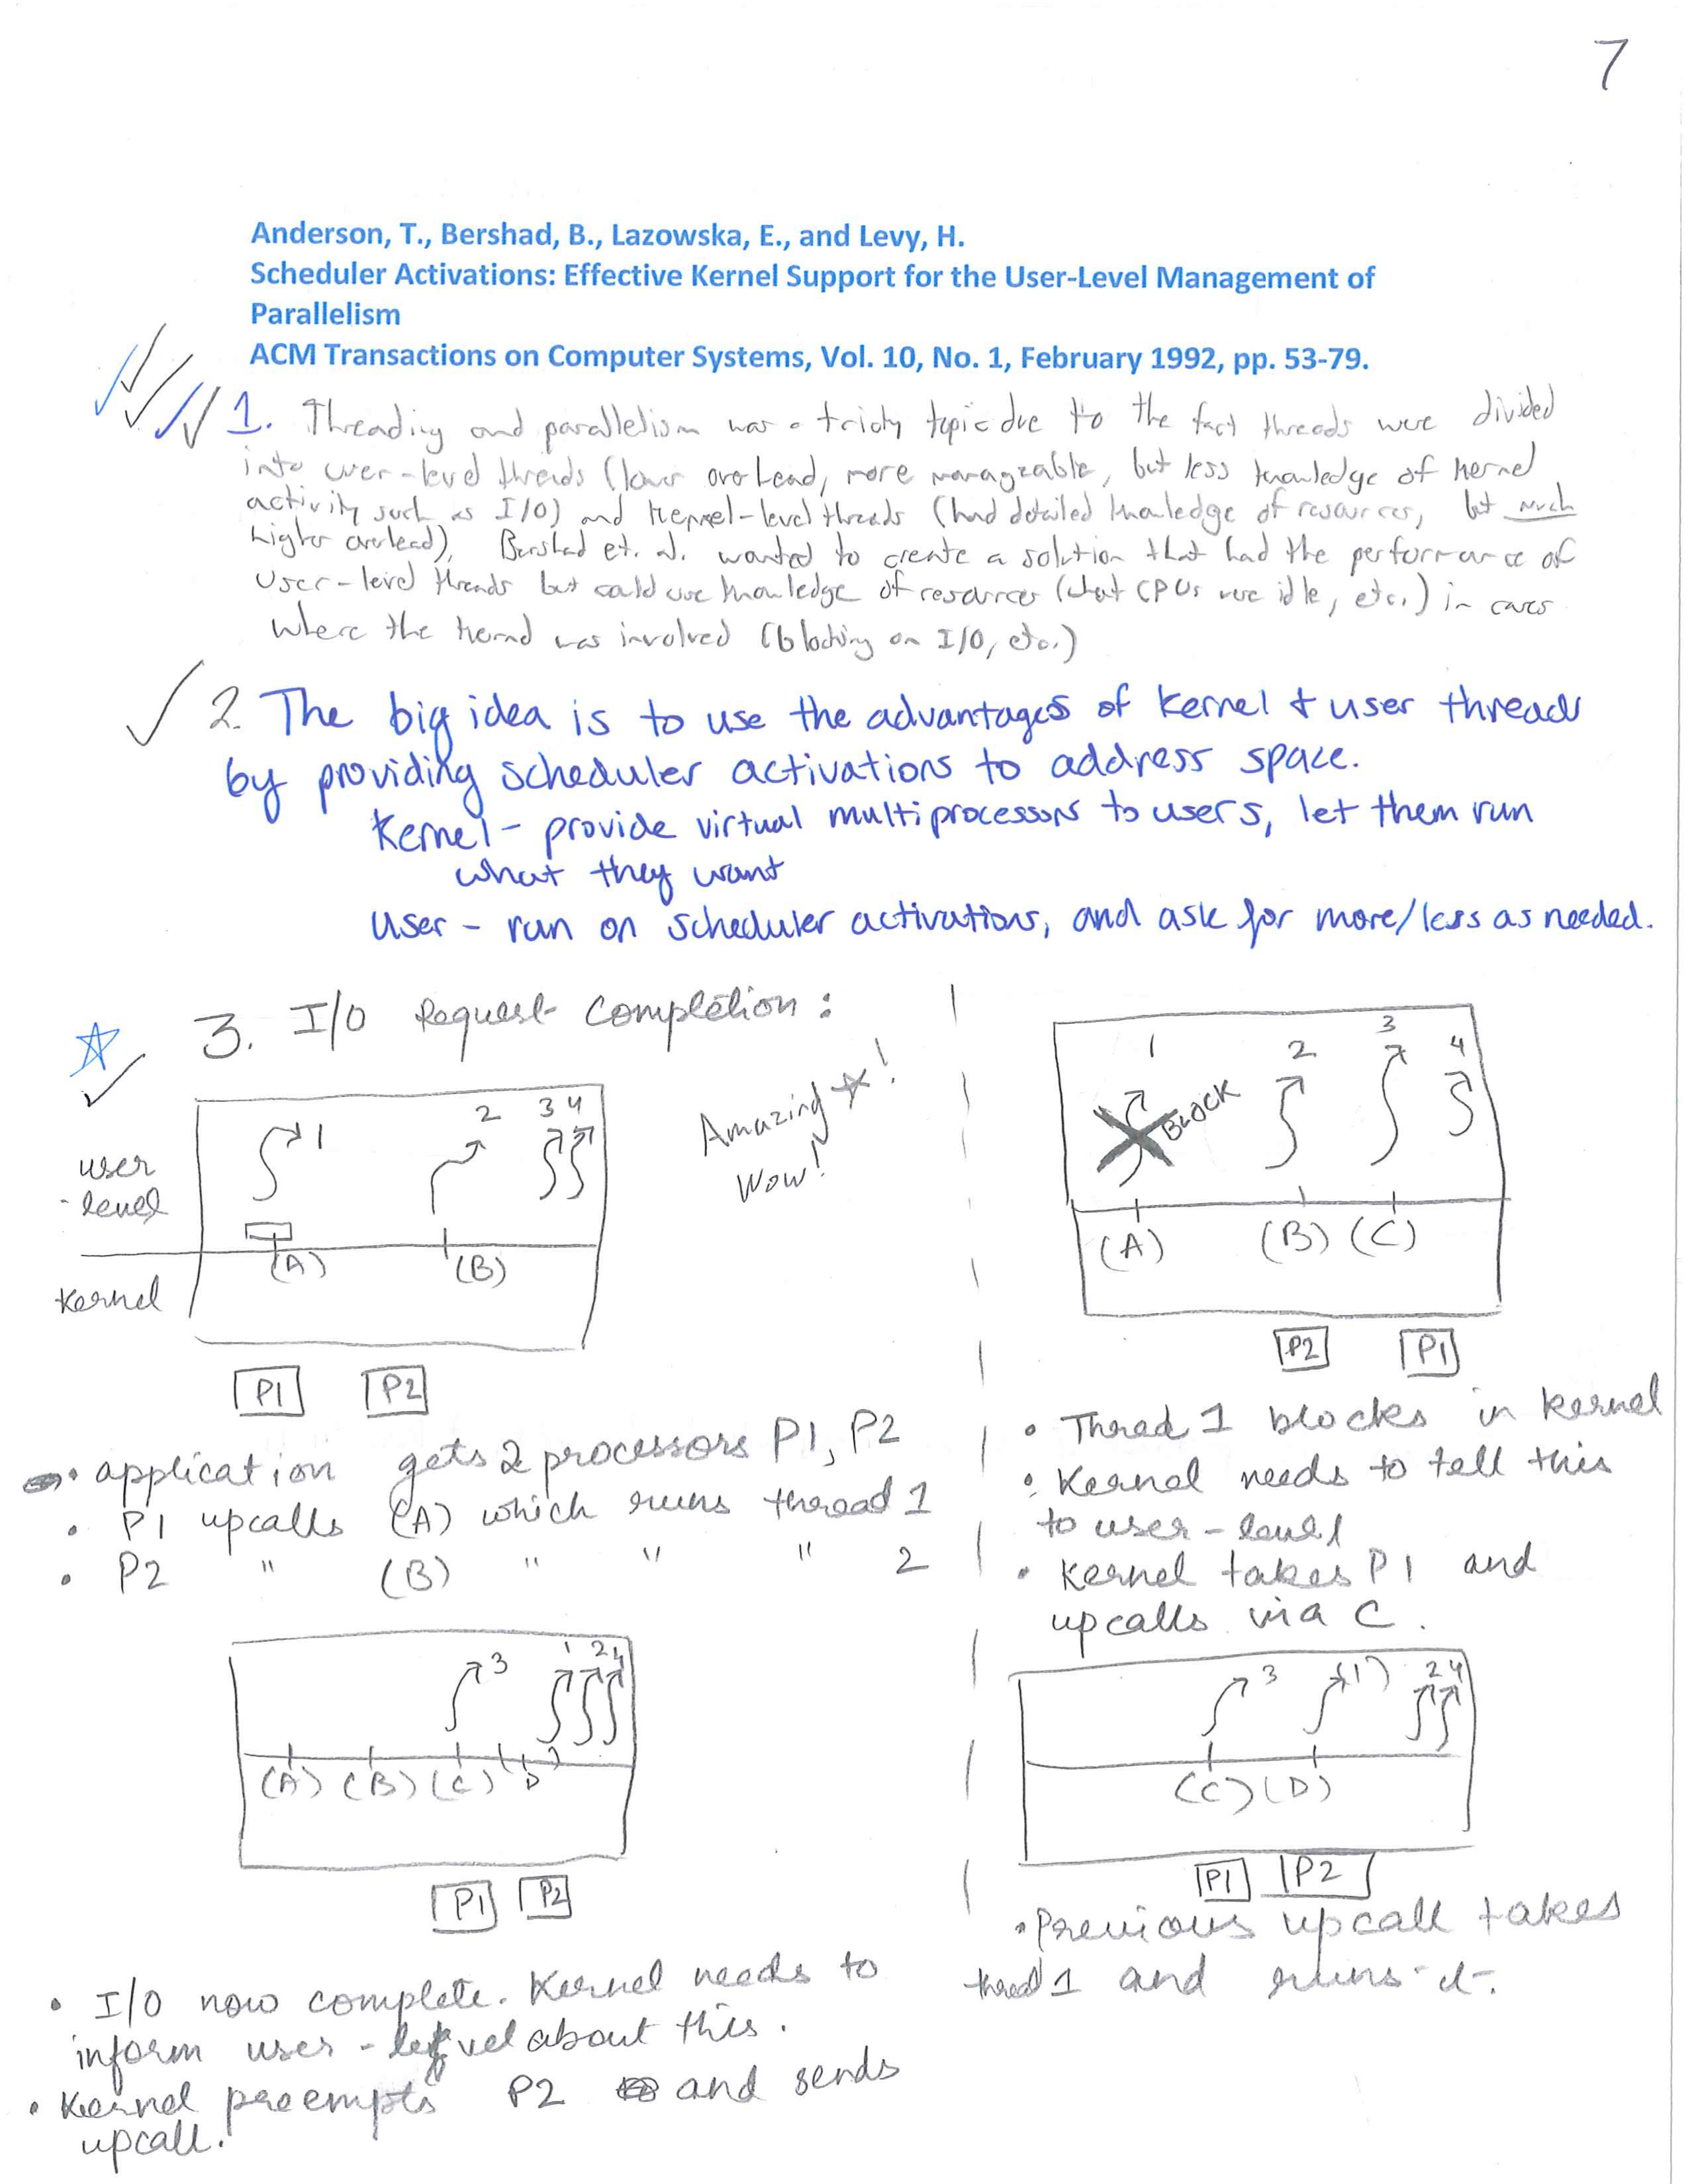 7
Anderson, T., Bershad, B., Lazowska, E., and Levy, H.
Scheduler Activations: Effective Kernel Support for the User-Level Management of
Parallelism
ACM Transactions on Computer Systems, Vol. 10, No. 1, February 1992, pp. 53-79.
1. Threading and parallelism was a tricky topic due to the fact threads were divided
into user-level threads (lower overhead, more manageable, but less knowledge of kernel
activity such as I/O) and kernel-level threads (had detailed knowledge of resources, but much
higher overhead). Bershad et. al. wanted to create a solution that had the performance of
user-level threads but could use knowledge of resources (what CPUs were idle, etc.) in cases
where the kernel was involved (blocking on I/O, etc.)
2. The big idea is to use the advantages of kernel + user threads
by providing scheduler activations to address space.
Kernel - provide virtual multiprocessors to users, let them run
what they want
User - run on scheduler activations, and ask for more/less as needed.
3. I/O Request Completion:
Amazing!
Wow!
user
-level
Kernel
1 2 3 4
(A) (B)
P1 P2
• application gets 2 processors P1, P2
• P1 upcalls (A) which runs thread 1
• P2 " (B) " " " 2
1 2 3 4
BLOCK
(A) (B) (C)
P2 P1
• Thread 1 blocks in kernel
• Kernel needs to tell this
to user-level
• Kernel takes P1 and
upcalls via C.
3 1 2 4
(A) (B) (C) D
P1 P2
• I/O now complete. Kernel needs to
inform user-level about this.
• Kernel preempts P2 and sends
upcall.
3 (1) 2 4
(C) (D)
P1 P2
• Previous upcall takes
thread 1 and runs it.